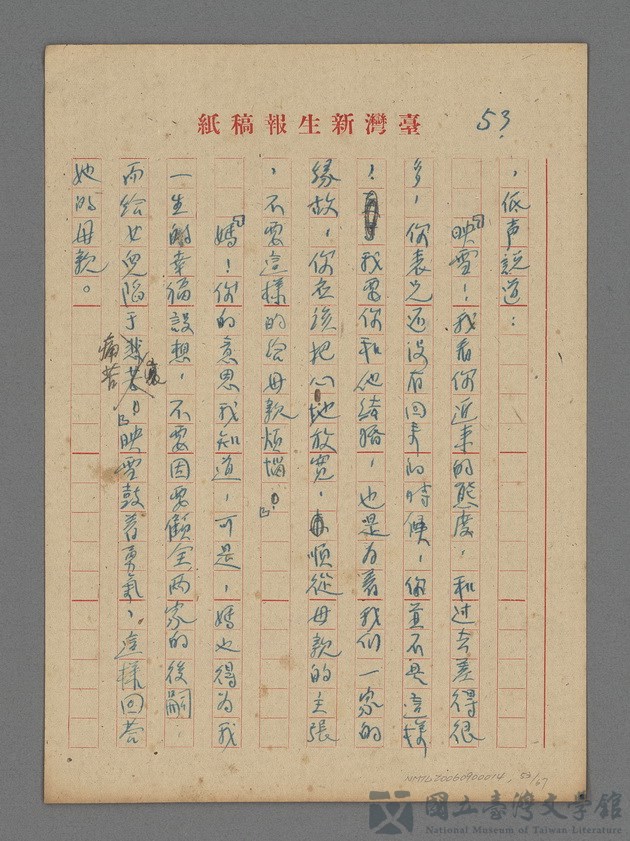 臺灣新生報稿紙
53
，低声説道：
「映雪！我看你近来的態度，和过去差得很
多，你表兄还没有回来的時候，你並不是這樣
！我要你和他结婚，也是为着我们一家的
緣故，你应該把心地放宽，順從母親的主張
，不要這樣的给母親煩惱。」
「媽！你的意思我知道，可是，媽也得为我
一生的幸福設想，不要因要顧全两家的後嗣
而给女兒陷于痛苦。」映雪鼓着勇氣，這樣回答
她的母親。
NMTL20060900014, 53/67
國立臺灣文學館
National Museum of Taiwan Literature